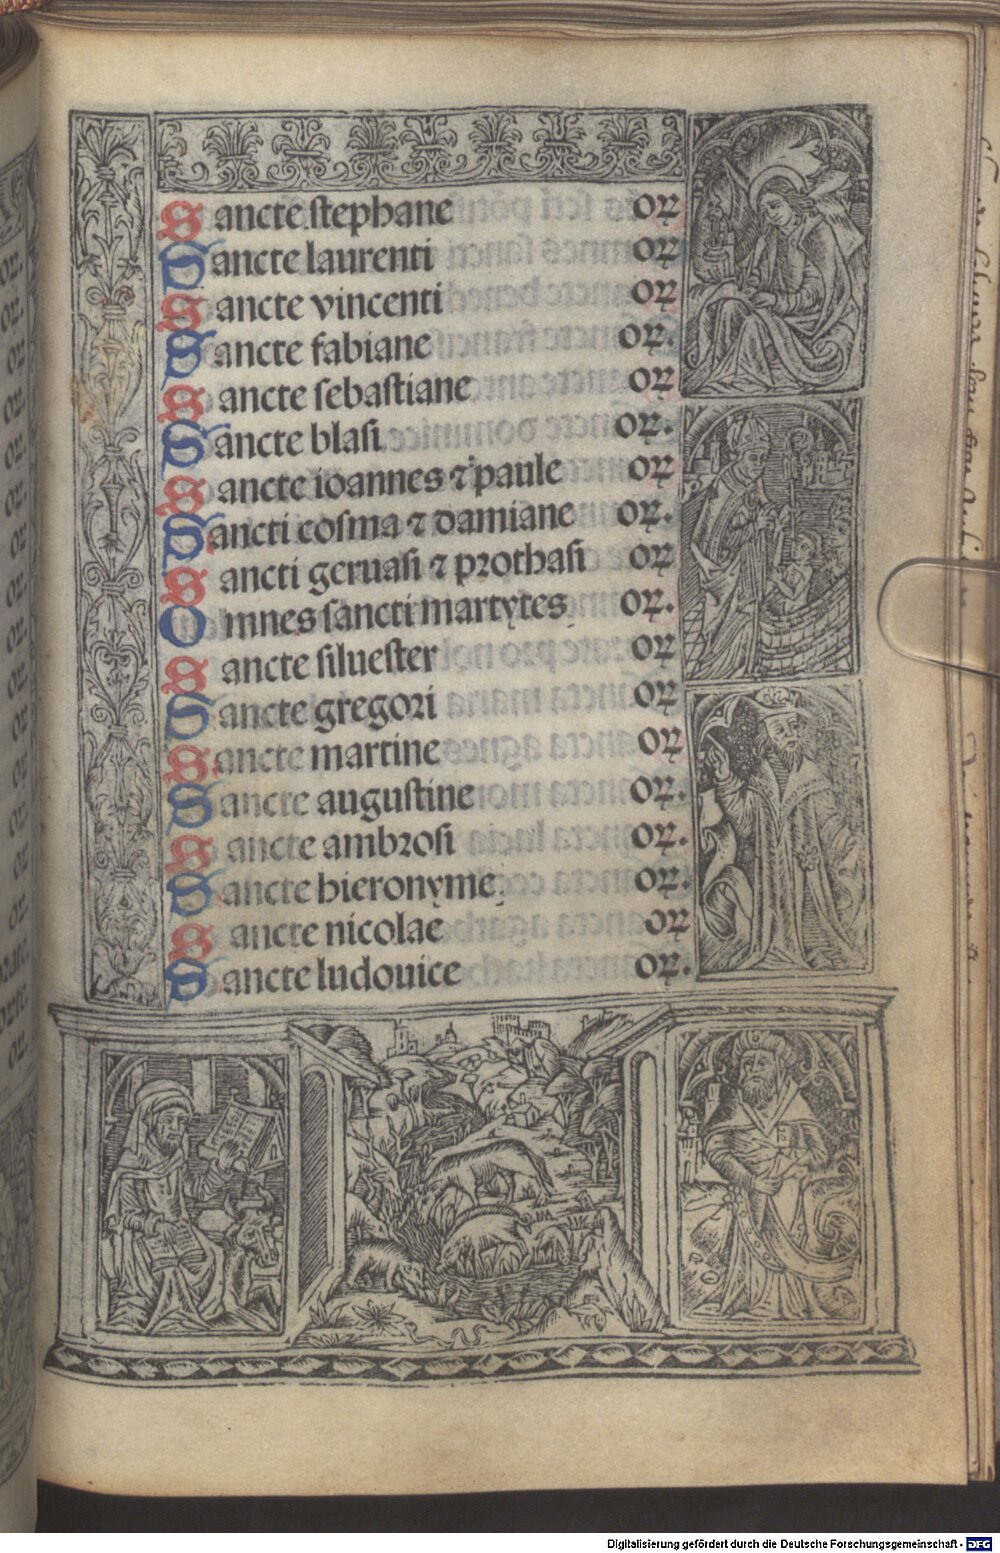 Sancte stephane oꝝ
Sancte laurenti oꝝ
Sancte vincenti oꝝ
Sancte fabiane oꝝ.
Sancte sebastiane oꝝ
Sancte blasi oꝝ.
Sancte ioannes ⁊ paule oꝝ
Sancti cosma ⁊ damiane oꝝ.
Sancti geruasi ⁊ prothasi oꝝ
Omnes sancti martytes oꝝ.
Sancte siluester oꝝ
Sancte gregori oꝝ
Sancte martine oꝝ
Sancte augustine oꝝ.
Sancte ambrosi oꝝ.
Sancte hieronyme oꝝ.
Sancte nicolae oꝝ
Sancte ludouice oꝝ.
Digitalisierung gefördert durch die Deutsche Forschungsgemeinschaft - DFG